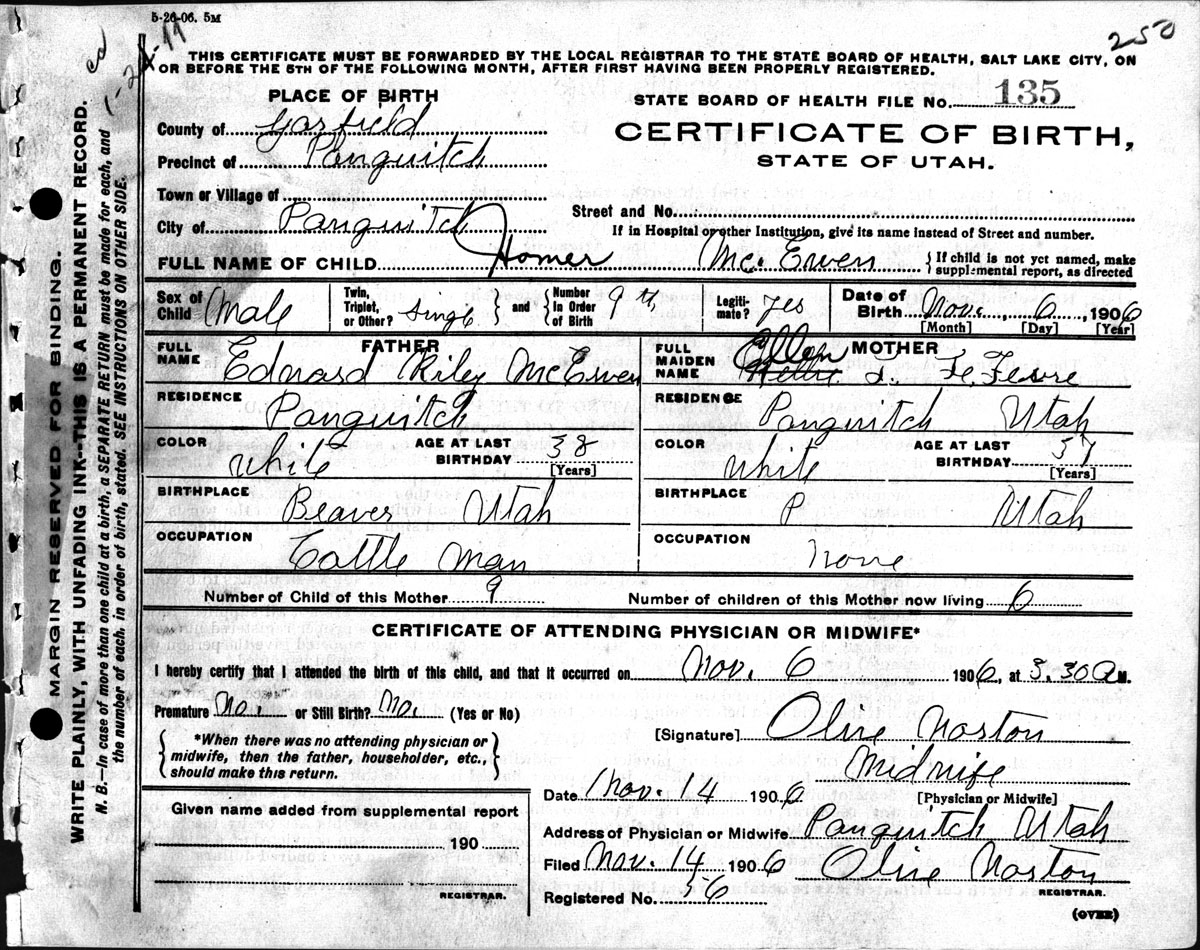 5-26-06. 5M
250
THIS CERTIFICATE MUST BE FORWARDED BY THE LOCAL REGISTRAR TO THE STATE BOARD OF HEALTH, SALT LAKE CITY, ON
OR BEFORE THE 5TH OF THE FOLLOWING MONTH, AFTER FIRST HAVING BEEN PROPERLY REGISTERED.
PLACE OF BIRTH
STATE BOARD OF HEALTH FILE No. 135
County of Garfield
CERTIFICATE OF BIRTH,
Precinct of Panguitch
STATE OF UTAH.
Town or Village of
Street and No.
City of Panguitch
If in Hospital or other Institution, give its name instead of Street and number.
FULL NAME OF CHILD Homer Mc. Ewen { If child is not yet named, make
supplemental report, as directed
Sex of Child Male
Twin, Triplet, or Other? single } and { Number In Order of Birth 9th
Legiti- mate? yes
Date of Birth Nov. 6, 1906
[Month] [Day] [Year]
FATHER
FULL NAME Edward Riley McEwen
MOTHER
FULL MAIDEN NAME Ellen Nellie L. Le Fevre
RESIDENCE Panguitch
RESIDENCE Panguitch Utah
COLOR White AGE AT LAST BIRTHDAY 38
[Years]
COLOR White AGE AT LAST BIRTHDAY 37
[Years]
BIRTHPLACE Beaver Utah
BIRTHPLACE P Utah
OCCUPATION Cattle Man
OCCUPATION None
Number of Child of this Mother 9
Number of children of this Mother now living 6
CERTIFICATE OF ATTENDING PHYSICIAN OR MIDWIFE*
I hereby certify that I attended the birth of this child, and that it occurred on Nov. 6 1906, at 3.30 A M.
Premature No. or Still Birth? No. (Yes or No)
[Signature] Olive Norton
{ *When there was no attending physician or
midwife, then the father, householder, etc.,
should make this return. }
Midwife
[Physician or Midwife]
Date Nov. 14 1906
Given name added from supplemental report
190
REGISTRAR.
Address of Physician or Midwife Panguitch Utah
Filed Nov. 14 1906 Olive Norton
REGISTRAR.
Registered No. 56
(OVER)
MARGIN RESERVED FOR BINDING.
WRITE PLAINLY, WITH UNFADING INK—THIS IS A PERMANENT RECORD.
N. B.—In case of more than one child at a birth, a SEPARATE RETURN must be made for each, and
the number of each, in order of birth, stated. SEE INSTRUCTIONS ON OTHER SIDE.